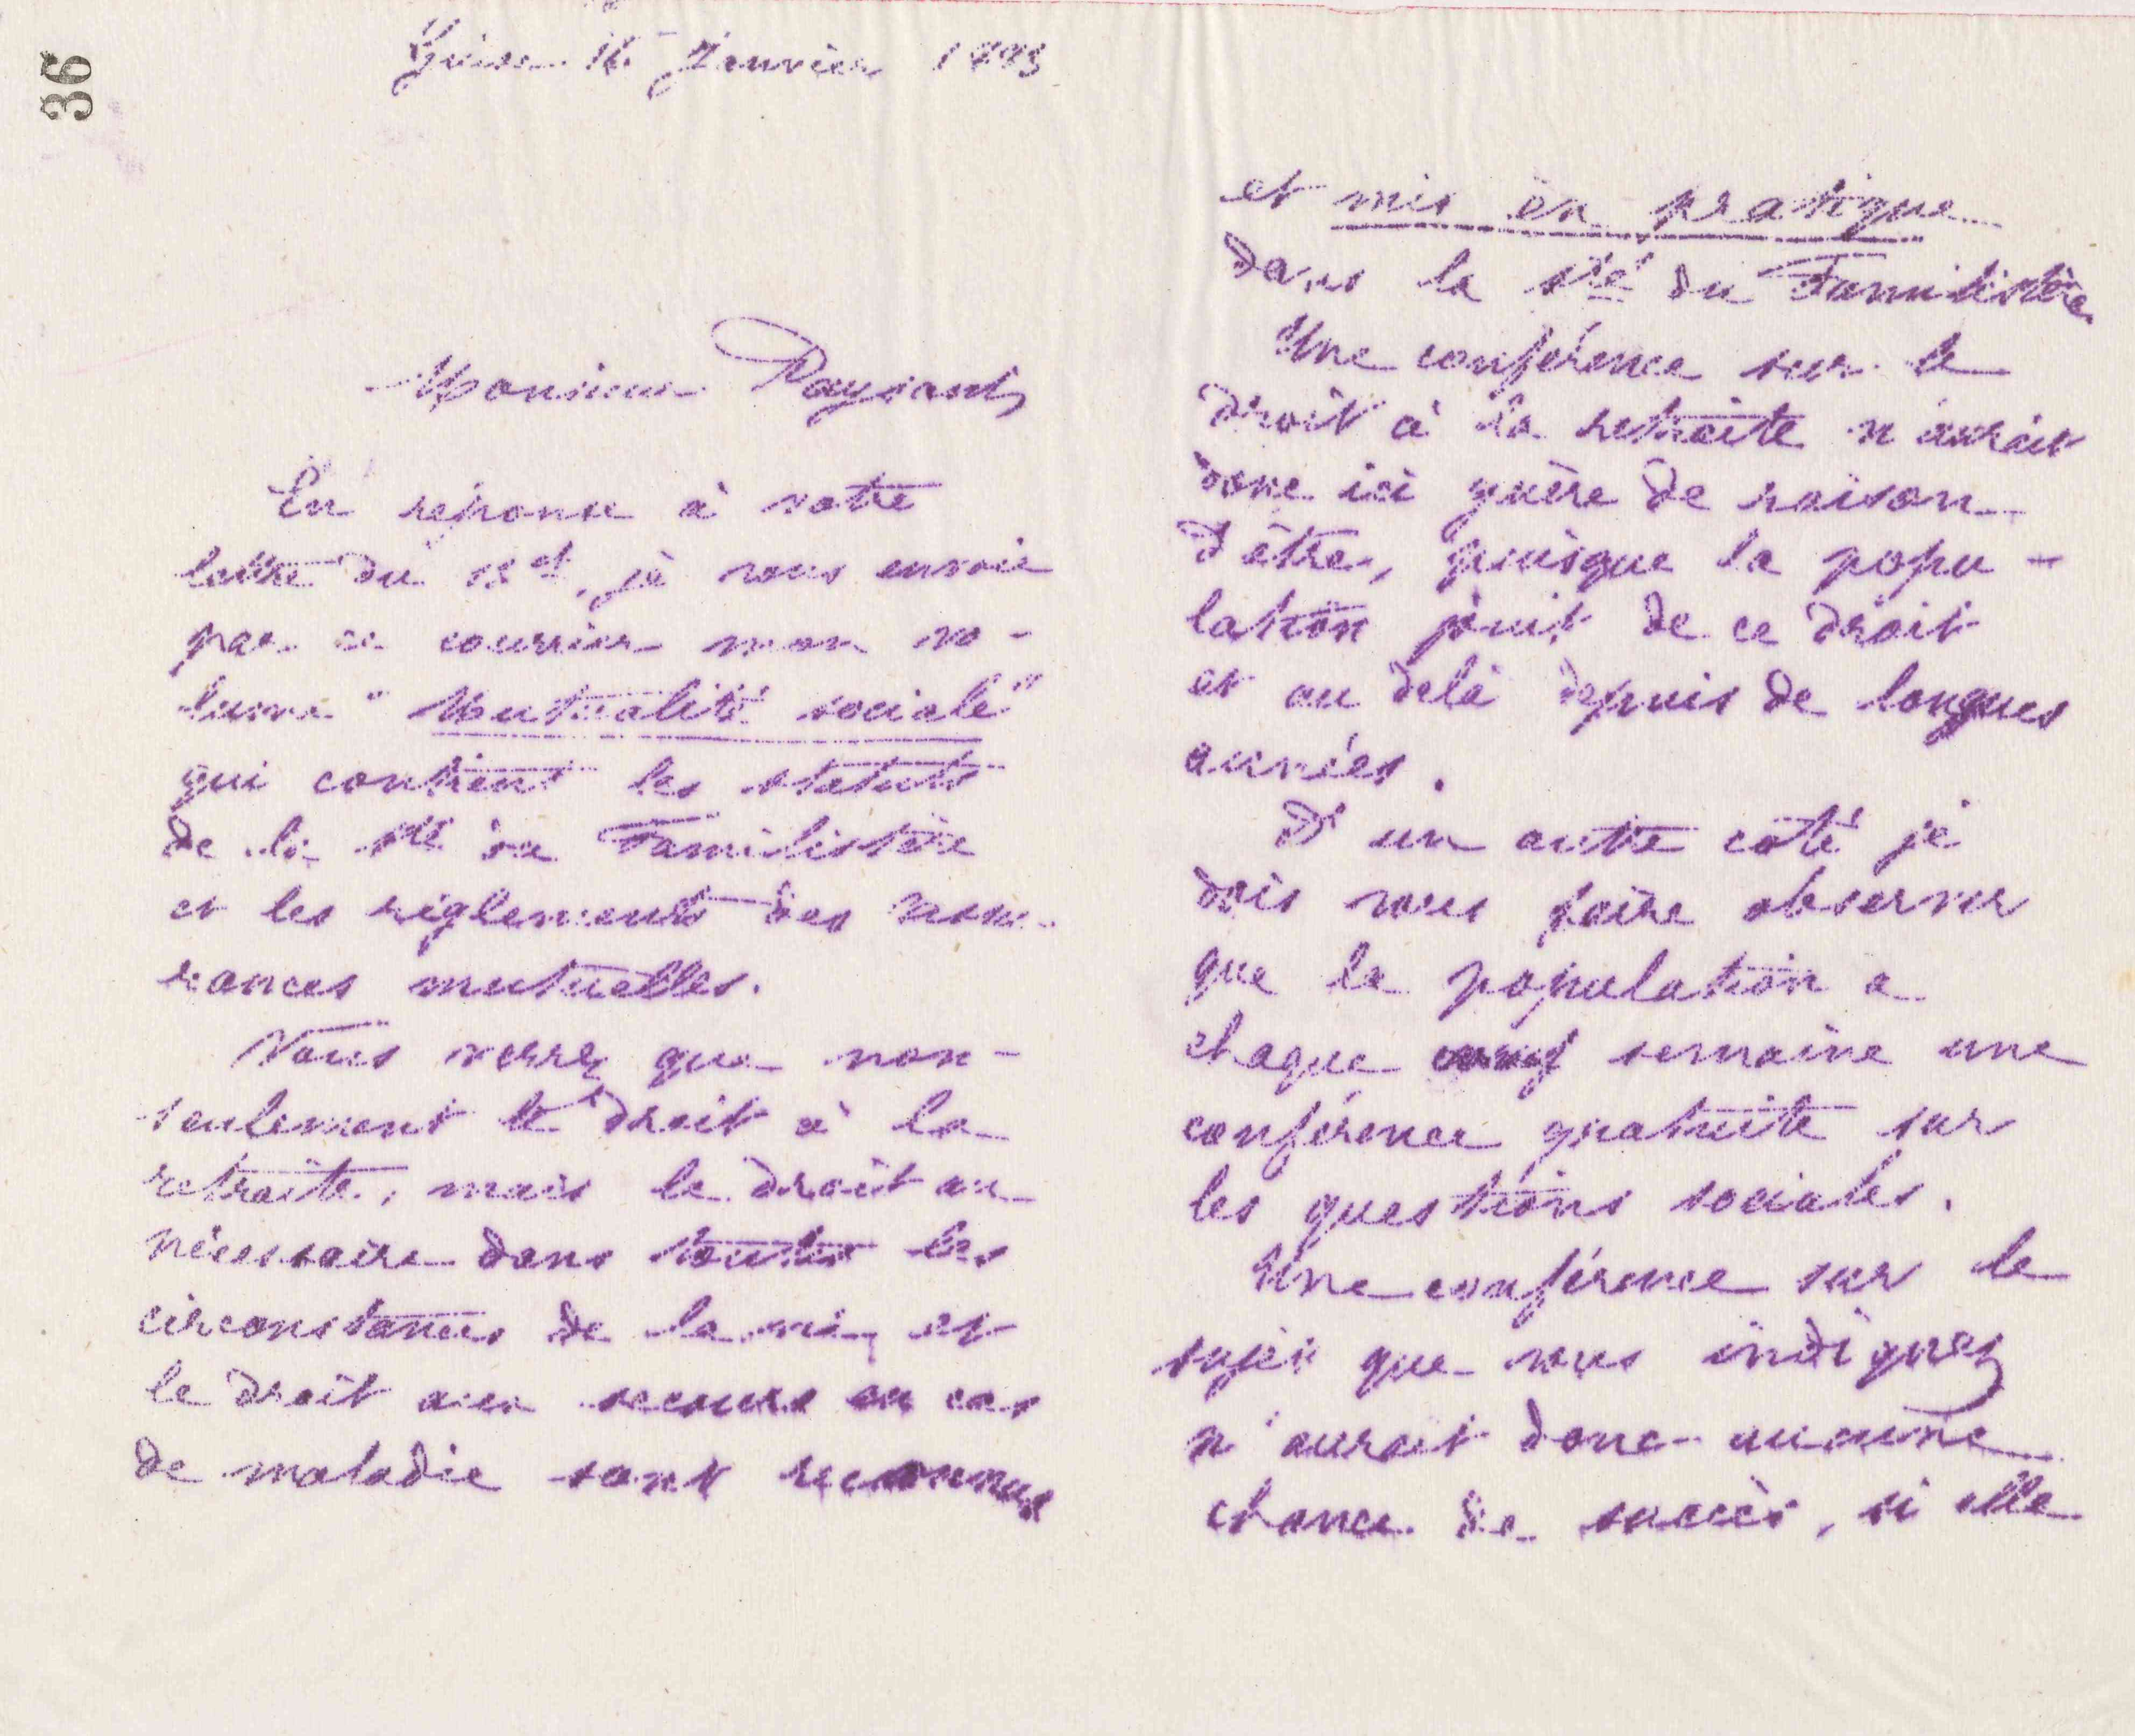 36
Guise 16 Janvier 1883
Monsieur Paysant,
En réponse à votre
lettre du 13 ct, je vous envoie
par ce courrier mon vo-
lume "Mutualité sociale"
qui contient les statuts
de la Sté du Familistère
et les règlements des assu-
rances mutuelles.
Vous verrez que non-
seulement le droit à la
retraite, mais le droit au
nécessaire dans toutes les
circonstances de la vie, et
le droit aux secours en cas
de maladie sont reconnus
et mis en pratique
dans la Sté du Familistère.
Une conférence sur le
droit à la retraite n'aurait
donc ici guère de raison
d'être, puisque la popu-
lation jouit de ce droit
et au delà depuis de longues
années.
D'un autre côté je
dois vous faire observer
que la population a
chaque semaine une
conférence gratuite sur
les questions sociales.
Une conférence sur le
sujet que vous indiquez
n'aurait donc aucune
chance de succès, si elle